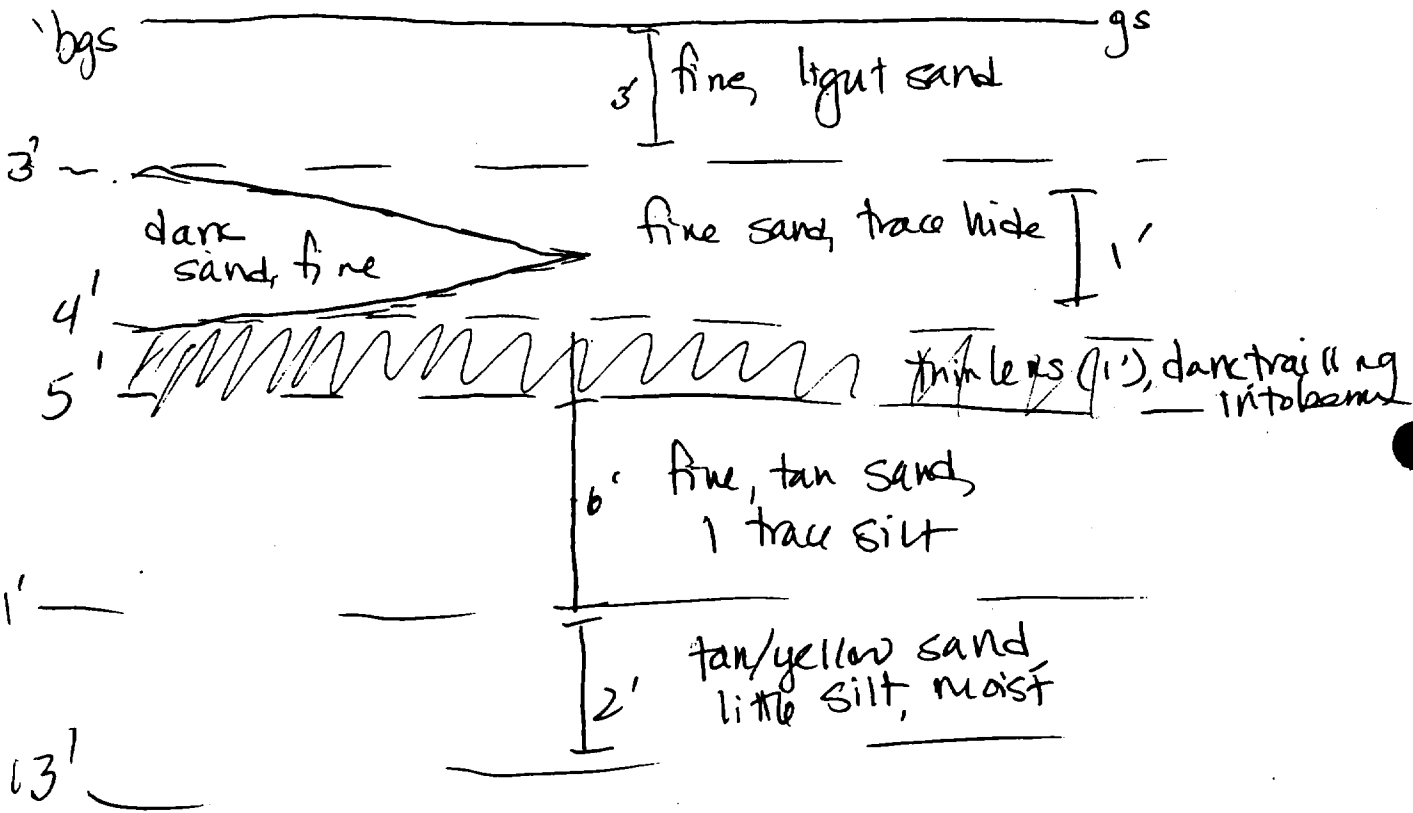 'bgs gs
3' fine, light sand
3'
dark
sand, fine
fine sand, trace hide 1'
4'
5'
thin lens (1'), dark trailing
into
6' fine, tan sand,
trace silt
1'
tan/yellow sand,
little silt, moist
2'
13'